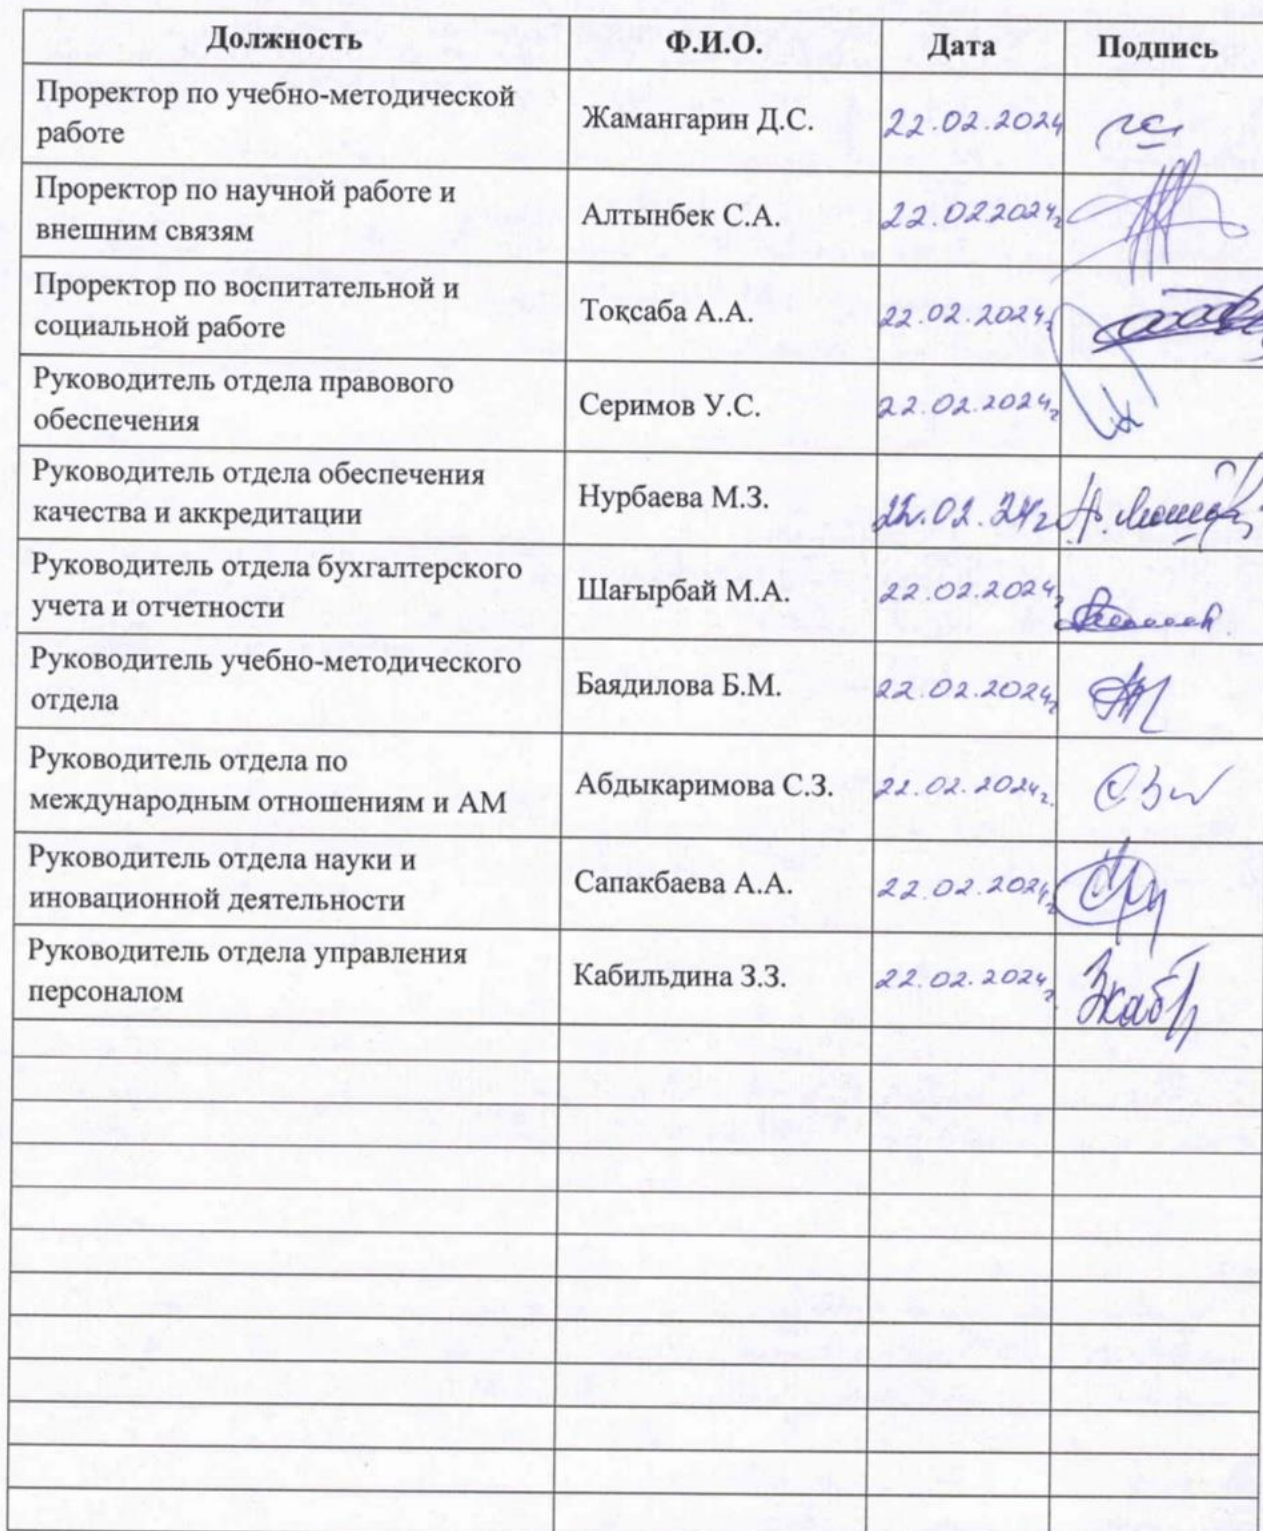 Должность Ф.И.О. Дата Подпись
Проректор по учебно-методической
работе
Жамангарин Д.С. 22.02.2024
Проректор по научной работе и
внешним связям
Алтынбек С.А. 22.022024г
Проректор по воспитательной и
социальной работе
Тоқсаба А.А. 22.02.2024г
Руководитель отдела правового
обеспечения
Серимов У.С. 22.02.2024г
Руководитель отдела обеспечения
качества и аккредитации
Нурбаева М.З. 22.02.24г
Руководитель отдела бухгалтерского
учета и отчетности
Шағырбай М.А. 22.02.2024г
Руководитель учебно-методического
отдела
Баядилова Б.М. 22.02.2024г
Руководитель отдела по
международным отношениям и АМ
Абдыкаримова С.З. 22.02.2024г.
Руководитель отдела науки и
иновационной деятельности
Сапакбаева А.А. 22.02.2024г
Руководитель отдела управления
персоналом
Кабильдина З.З. 22.02.2024г